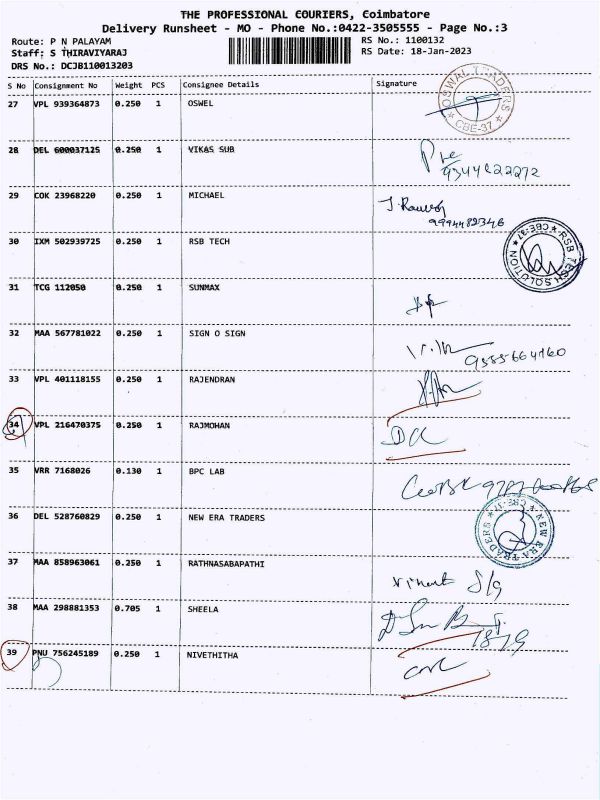 THE PROFESSIONAL COURIERS, Coimbatore
Delivery Runsheet - MO - Phone No.:0422-3505555 - Page No.:3
Route: P N PALAYAM
RS No.: 1100132
Staff: S THIRAVIYARAJ
RS Date: 18-Jan-2023
DRS No.: DCJB110013203
S No Consignment No Weight PCS Consignee Details Signature
27 VPL 939364873 0.250 1 OSWEL
OSWAL TRADERS CBE-37
28 DEL 600037125 0.250 1 VIKAS SUB
9344622272
29 COK 23968220 0.250 1 MICHAEL
9994482346
30 IXM 502939725 0.250 1 RSB TECH
RSB TECH SOLUTION CBE-37
31 TCG 112050 0.250 1 SUNMAX
32 MAA 567781022 0.250 1 SIGN O SIGN
9585664160
33 VPL 401118155 0.250 1 RAJENDRAN
34 VPL 216470375 0.250 1 RAJMOHAN
35 VRR 7168026 0.130 1 BPC LAB
36 DEL 528760829 0.250 1 NEW ERA TRADERS
NEW ERA TRADERS CBE-37
37 MAA 858963061 0.250 1 RATHNASABAPATHI
38 MAA 298881353 0.705 1 SHEELA
39 PNU 756245189 0.250 1 NIVETHITHA